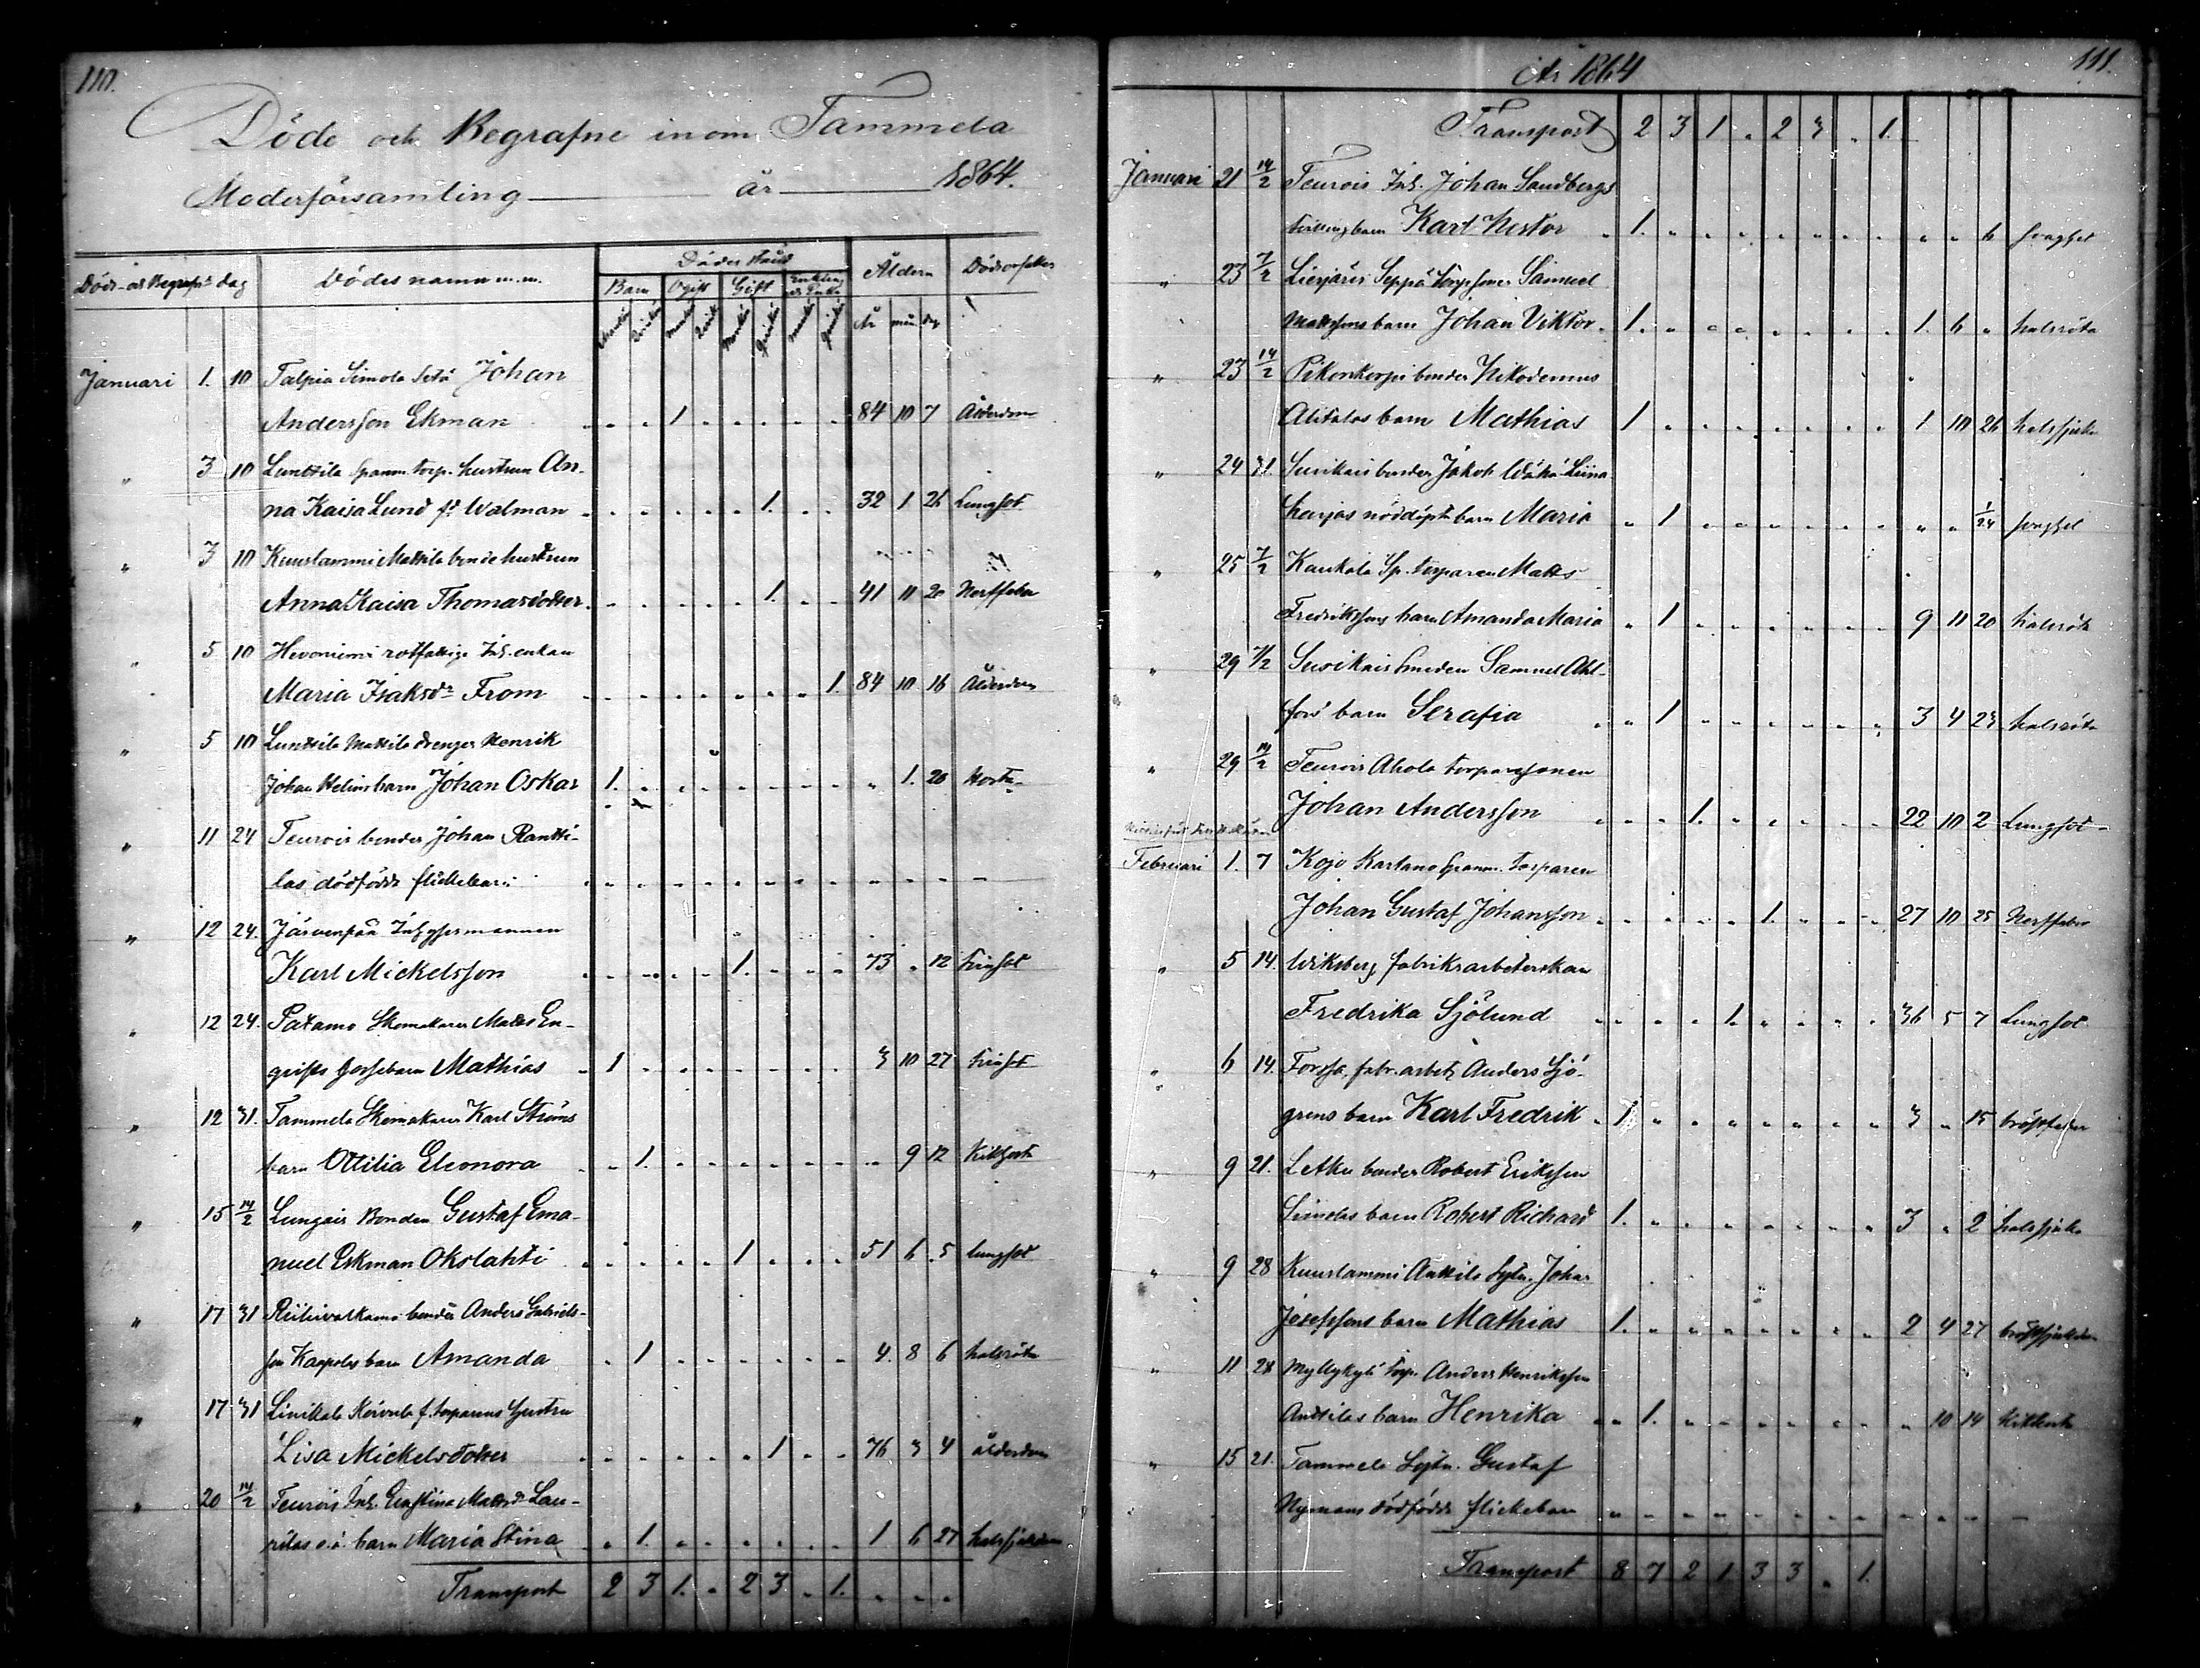 110.
Döde och Begrafne inom Tammela
Moderförsamling år 1864.
Döds- och Begrafn. dag Dödes namn m.m. Dödes stånd Åldern Dödsorsaker
Barn Ogift Gift Enkling och Enka
År mån dag
Januari 1. 10 Talpia Simola Sytn. Johan
Andersson Ekman 1 84 10 7 Ålderdom
" 3 10 Lunttila Spanm. torp. hustrun An-
na Kaisa Lund fd Walman 1. 32 1 26 Lungsot
" 3 10 Kuuslammi Mattila bonde hustrun
Anna Kaisa Thomasdotter 1. 41 11 20 Nerffeber
" 5 10 Hevoniemi rotfattige Inh. enkan
Maria Isaksdr From 1. 84 10 16 Ålderdom
" 5 10 Lunttila Mattila drengen Henrik
Johan Helins barn Johan Oskar 1. " 1. 20 Hosta
" 11 24 Teurois bonden Johan Rantti-
las dödfödda flickebarn
" 12 24. Järvenpää Inhysesmannen
Karl Mickelsson 1. 73 " 12
" 12 24. Patamo Skomakaren Matts En-
qvists gossebarn Mathias 1 3 10 27
" 12 31. Tammela Skomakaren Karl Ströms
barn Ottilia Eleonora 1. " 9 12 Kikhosta
" 15 14/2 Lungais Bonden Gustaf Ema-
nuel Eskman Okslahti 1 51 6 5 lungsot
" 17 31 bonden Anders Gabriels-
son Kaupilas barn Amanda 1 4. 8 6 halsröta
" 17 31 Liuikala f. torparens hustru
Lisa Mickelsdotter 1 76 3 4 ålderdom
" 20 14/2 Teurois Inh. Ernstina Mattsdr Lau-
rilas o.ä. barn Maria Stina 1. 1 6 27 halssjukdom
Transport 2 3 1. " 2 3 " 1.
År 1864
111.
Transport 2 3 1 " 2 3 " 1.
Januari 21 14/2 Teurois Inh. Johan Sandbergs
tvillingbarn Karl Nestor 1. " " 6 svaghet
" 23 7/2 Liesjärvi Seppä torpsonen Samuel
Mattssons barn Johan Viktor 1. 1. 6 " halsröta
" 23 14/2 Pikonkorpi bonden Nikodemus
Alitalos barn Mathias 1 1 10 26 halssjuka
" 24 31. Susikais bonden Jakob Wähä Liina
harjas nöddöpta barn Maria 1 " " 1/24 svaghet
" 25 7/2 Kaukola Sp. torparen Matts
Fredrikssons barn Amanda Maria 1 9 11 20 halsröta
" 29 7/2 Susikais Smeden Samuel Ahl-
fors barn Serafia 1 3 4 23 halsröta
" 29 14/2 Teurois Ahola torparsonen
Johan Andersson 1. 22 10 2 Lungsot
Februari 1. 7 Kojo Kartano Spanm. torparen
Johan Gustaf Johansson 1. 27 10 25 Nerffeber
" 5 14. Wiksberg fabriksarbeterskan
Fredrika Sjölund 1. 36 5 7 Lungsot
" 6 14. Forssa, fabr. arbet. Anders Sjö-
grens barn Karl Fredrik 1. 3 " 15 bröstfeber
" 9 21. Letku bonden Robert Eriksson
Simolas barn Robert Richard 1. 3 " 2 halssjuka
" 9 28 Kuuslammi Anttila Sytn. Johan
Josefssons barn Mathias 1. 2 4 27 bröstsjukdom
" 11 28 Myllykylä torp. Anders Henriksson
Anttilas barn Henrika 1. " 10 14 Kikhosta
" 15 21. Tammela Sytn. Gustaf
Nymans dödfödda flickebarn
Transport 8 7 2 1 3 3 " 1.